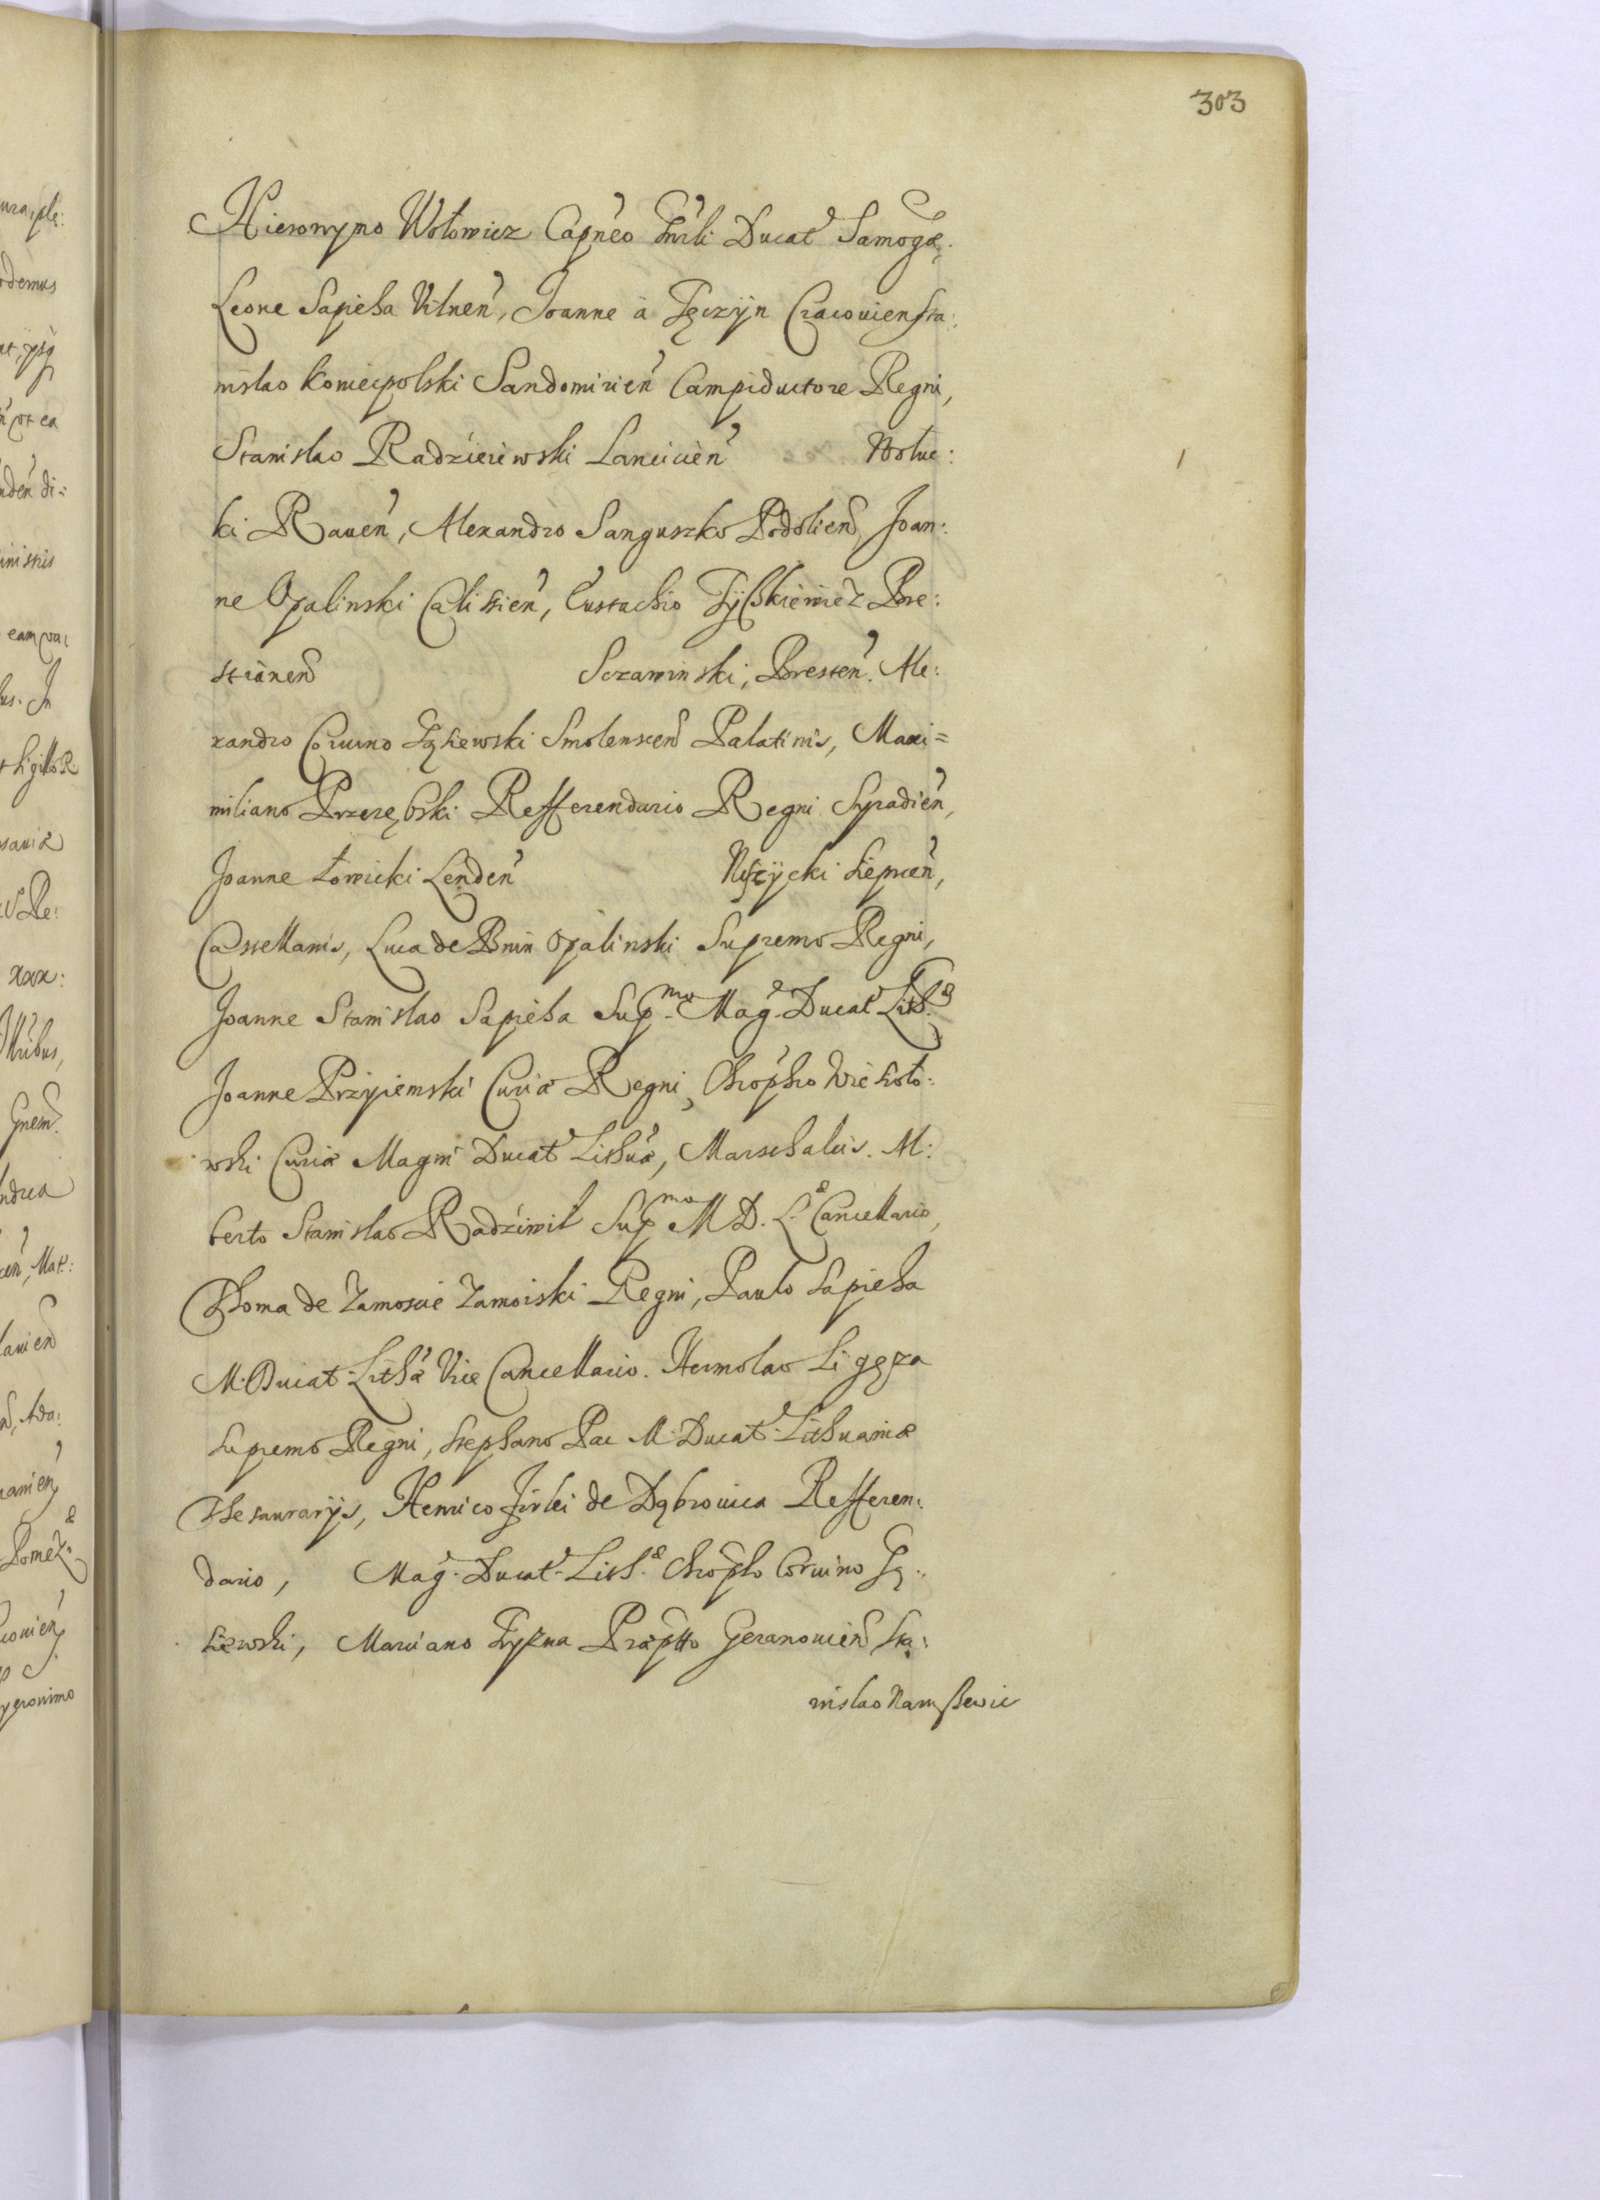 303
Hieronymo Wołowicz Capneo Gnrli Ducat Samogæ.
Leone Sapieha Vilnen, Joanne à Tęczÿn Cracovien Sta:
nislao Koniecpolski Sandomirien Campiductore Regni,
Stanislao Radzieiewski Lancicien Wołuc:
ki Raven, Alexandro Sanguszko Podolien Joan:
ne Opalinski Calissien, Eustachio Tÿszkiewicz Bre:
stianen Sczawinski, Bresten. Ale:
xandro Corvino Gąsiewski Smolenscen Palatinis, Maxi=
miliano Przerębski Refferendario Regni Syradien,
Joanne Łowicki Lenden Niszÿcki Siepricen,
Castellanis, Luca de Bnin Opalinski Supremo Regni,
Joanne Stanislao Sapieha Sup.mo Mag. Ducat Lith.æ
Joanne Przÿiemski Curiæ Regni, Chrophro Wiesioło:
wski Curiæ Magni Ducat Lithuæ, Marschalcis. Al:
berto Stanislao Radziwił Sup.mo M D. L.æ Cancellario,
Thoma de Zamoscie Zamoiski Regni, Paulo Sapieha
M. Ducat Lithæ Vice Cancellario. Hermolao Ligęza
Supremo Regni, Stephano Pac M. Ducat Lithuaniæ
Thesaurarijs, Henrico Firlei de Dąbrovica Refferen:
dario, Mag. Ducat. Lith.æ Chrophro Corvino Gą:
siewski, Marciano Tryzna Præptto Geranoinen Sta:
nislao Naruszewic
ura, ple: